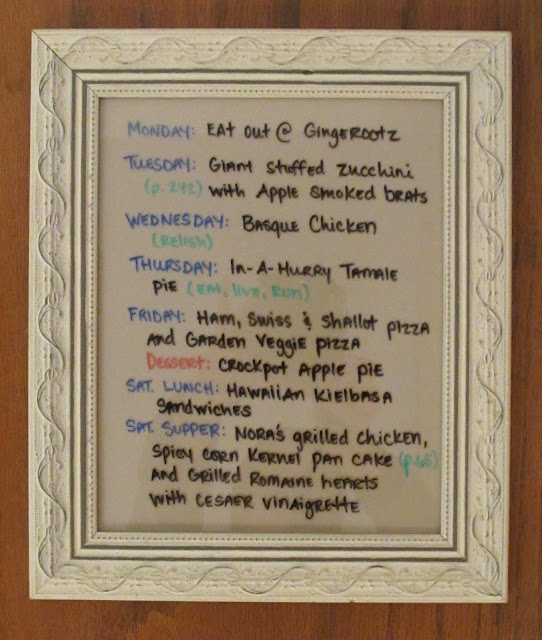 MONDAY: EAt out @ GingeRootz
TUESDAY: Giant stuffed zucchini
(p. 242) with Apple smoked brats
WEDNESDAY: BASQUE Chicken
(Relish)
THURSDAY: In-A-HURRY TAMALE
PiE (EAt, live, Run)
FRIDAY: HAM, SWISS & SHAllot pizzA
And GARDEN VEggiE pizzA
DESSERT: CROCKpot Apple piE
SAT. LUNCH: HAWAiiAn KiElbASA
SAndwicHES
SAT. SUPPER: NORA'S gRilled CHickEn,
Spicy CORN KERNEL PAN CAKE (p. 65)
And GRilled ROMAinE HEARTS
with CESAER VinAigREttE